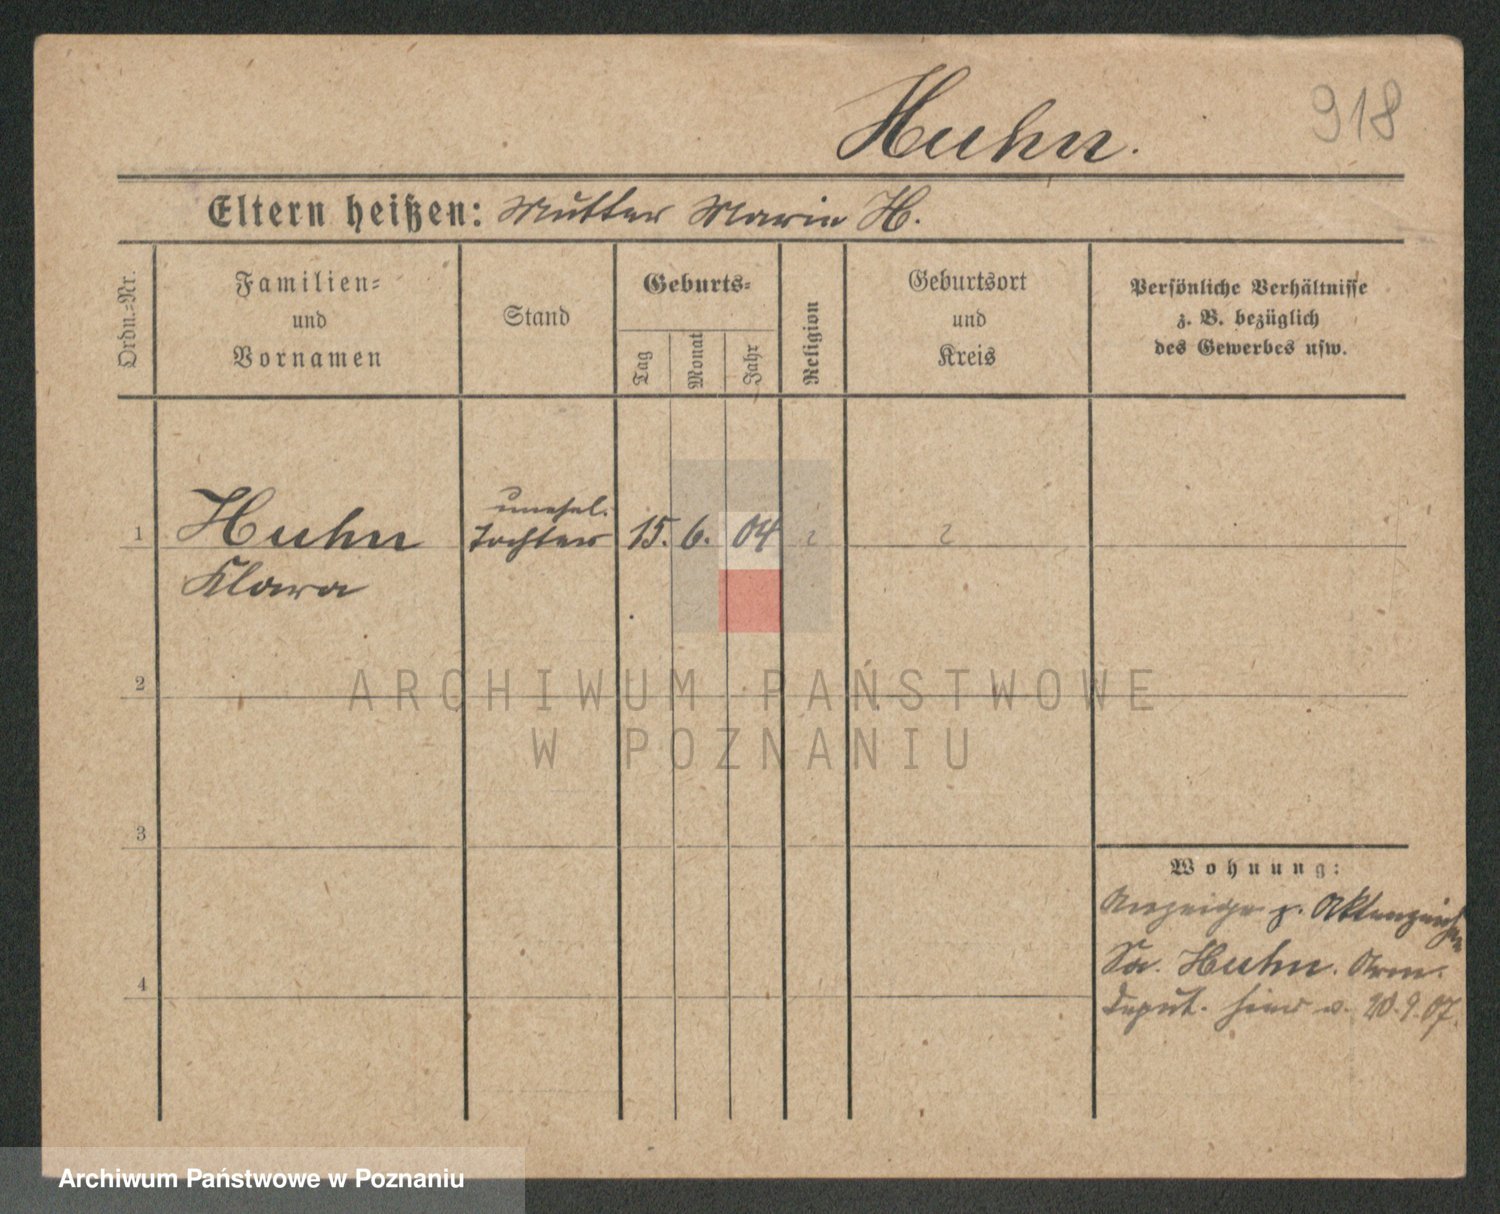 Huhn.
918
Eltern heißen: Mutter Marie H.
Ordn.-Nr.
Familien-
und
Vornamen
Stand
Geburts-
Tag
Monat
Jahr
Religion
Geburtsort
und
Kreis
Persönliche Verhältnisse
z. B. bezüglich
des Gewerbes usw.
1
Huhn
Klara
unehel.
Tochter
15. 6. 04
?
?
2
ARCHIWUM PAŃSTWOWE
W POZNANIU
3
4
Wohnung:
Anzeige z. Aktenzeichen
Sa. Huhn. Arm.
Deput. hier v. 20.9.07.
Archiwum Państwowe w Poznaniu